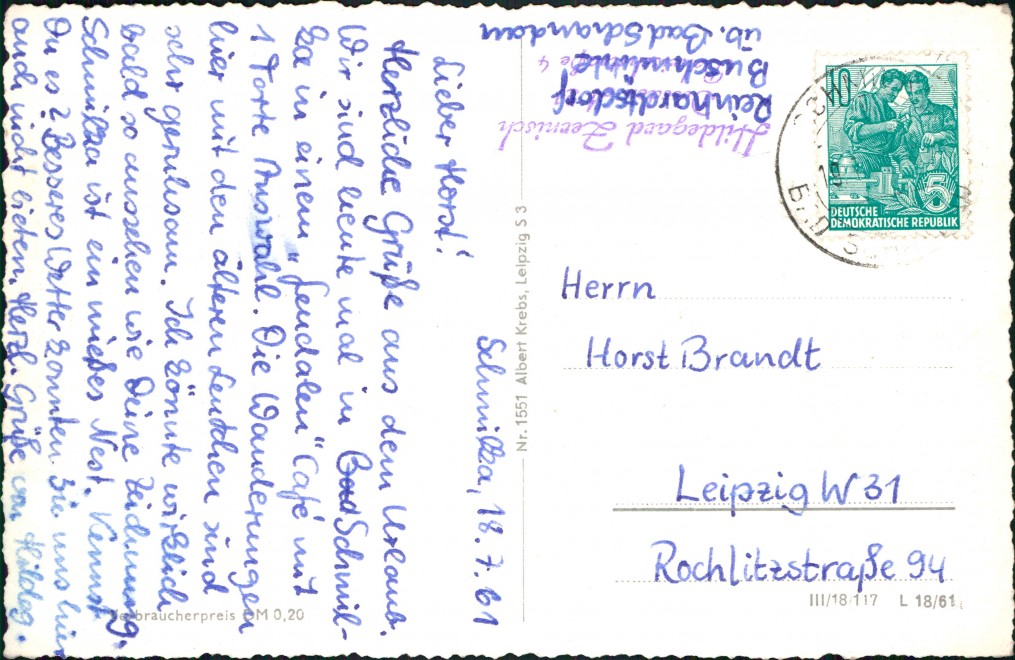 Schmilka, 18.7.61
Lieber Horst!
Herzliche Grüße aus dem Urlaub.
Wir sind heute mal in Bad Schmil-
ka in einem „feudalen" Café mit
1 Torte Auswahl. Die Wanderungen
hier mit den älteren Leutchen sind
sehr geruhsam. Ich könnte wirklich
bald so aussehen wie Deine Zeichnung.
Schmilka ist ein mießes Nest. Kennst
Du es? Besseres Wetter konnten Sie uns hier
auch nicht bieten. Herzl. Grüße von Hildeg.
Hildegard Zernisch
Reinhardtsdorf
Buschmühle
üb. Bad Schandau
Nr. 1551 Albert Krebs, Leipzig S 3
10
5
DEUTSCHE
DEMOKRATISCHE REPUBLIK
Herrn
Horst Brandt
Leipzig W 31
Rochlitzstraße 94
III/18/117 L 18/61
Verbraucherpreis DM 0,20